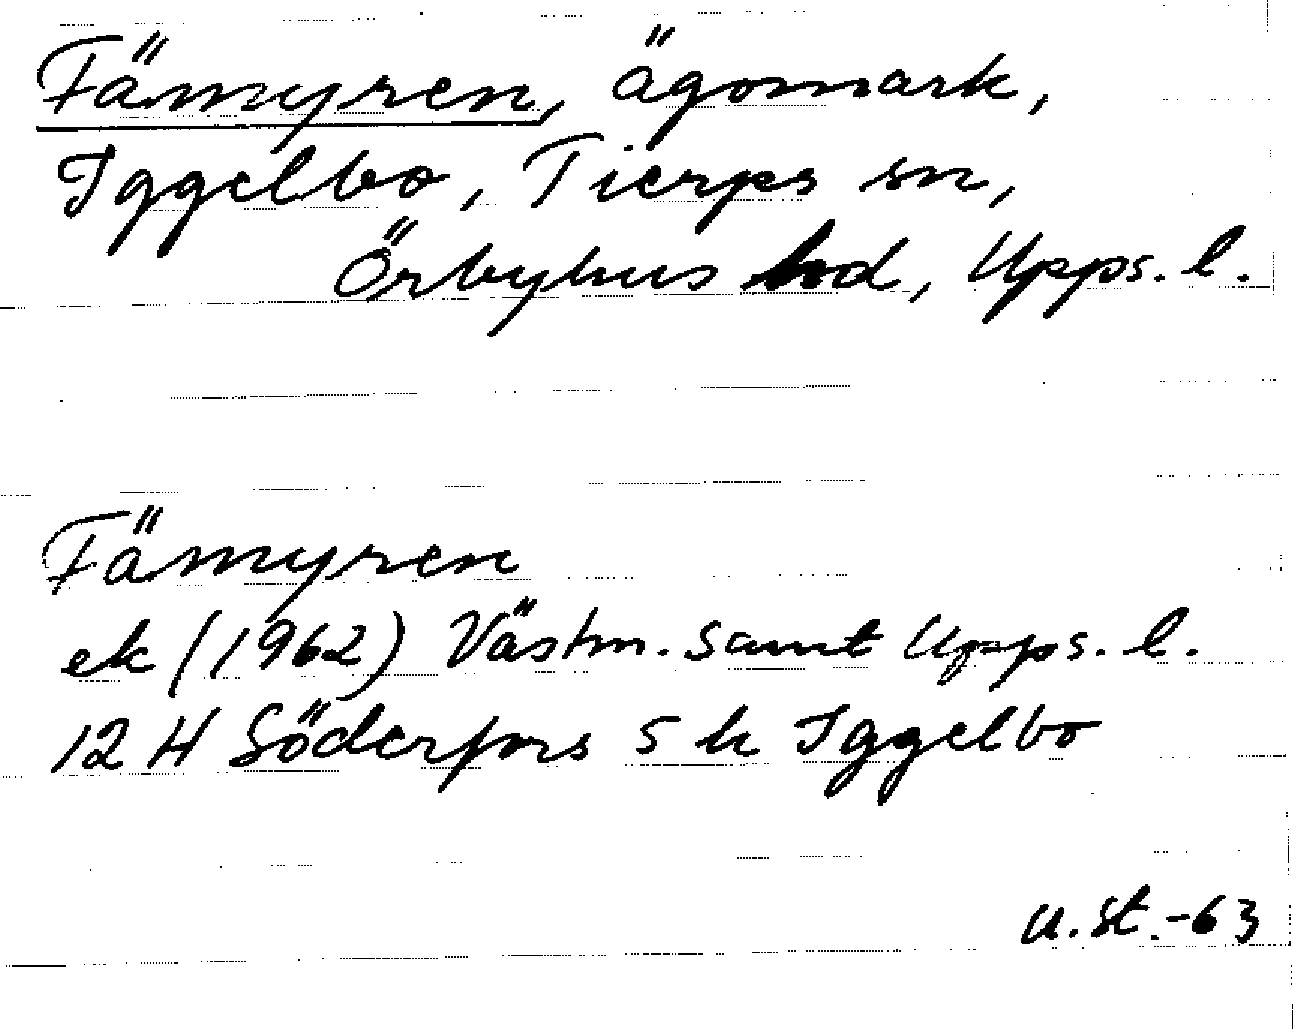 Fämyren, ägomark,
Iggelbo, Tierps sn,
Örbyhus hd, Upps. l.
Fämyren
ek (1962) Västm. samt Upps. l.
12 H Söderfors 5 h Iggelbo
u. st. -63